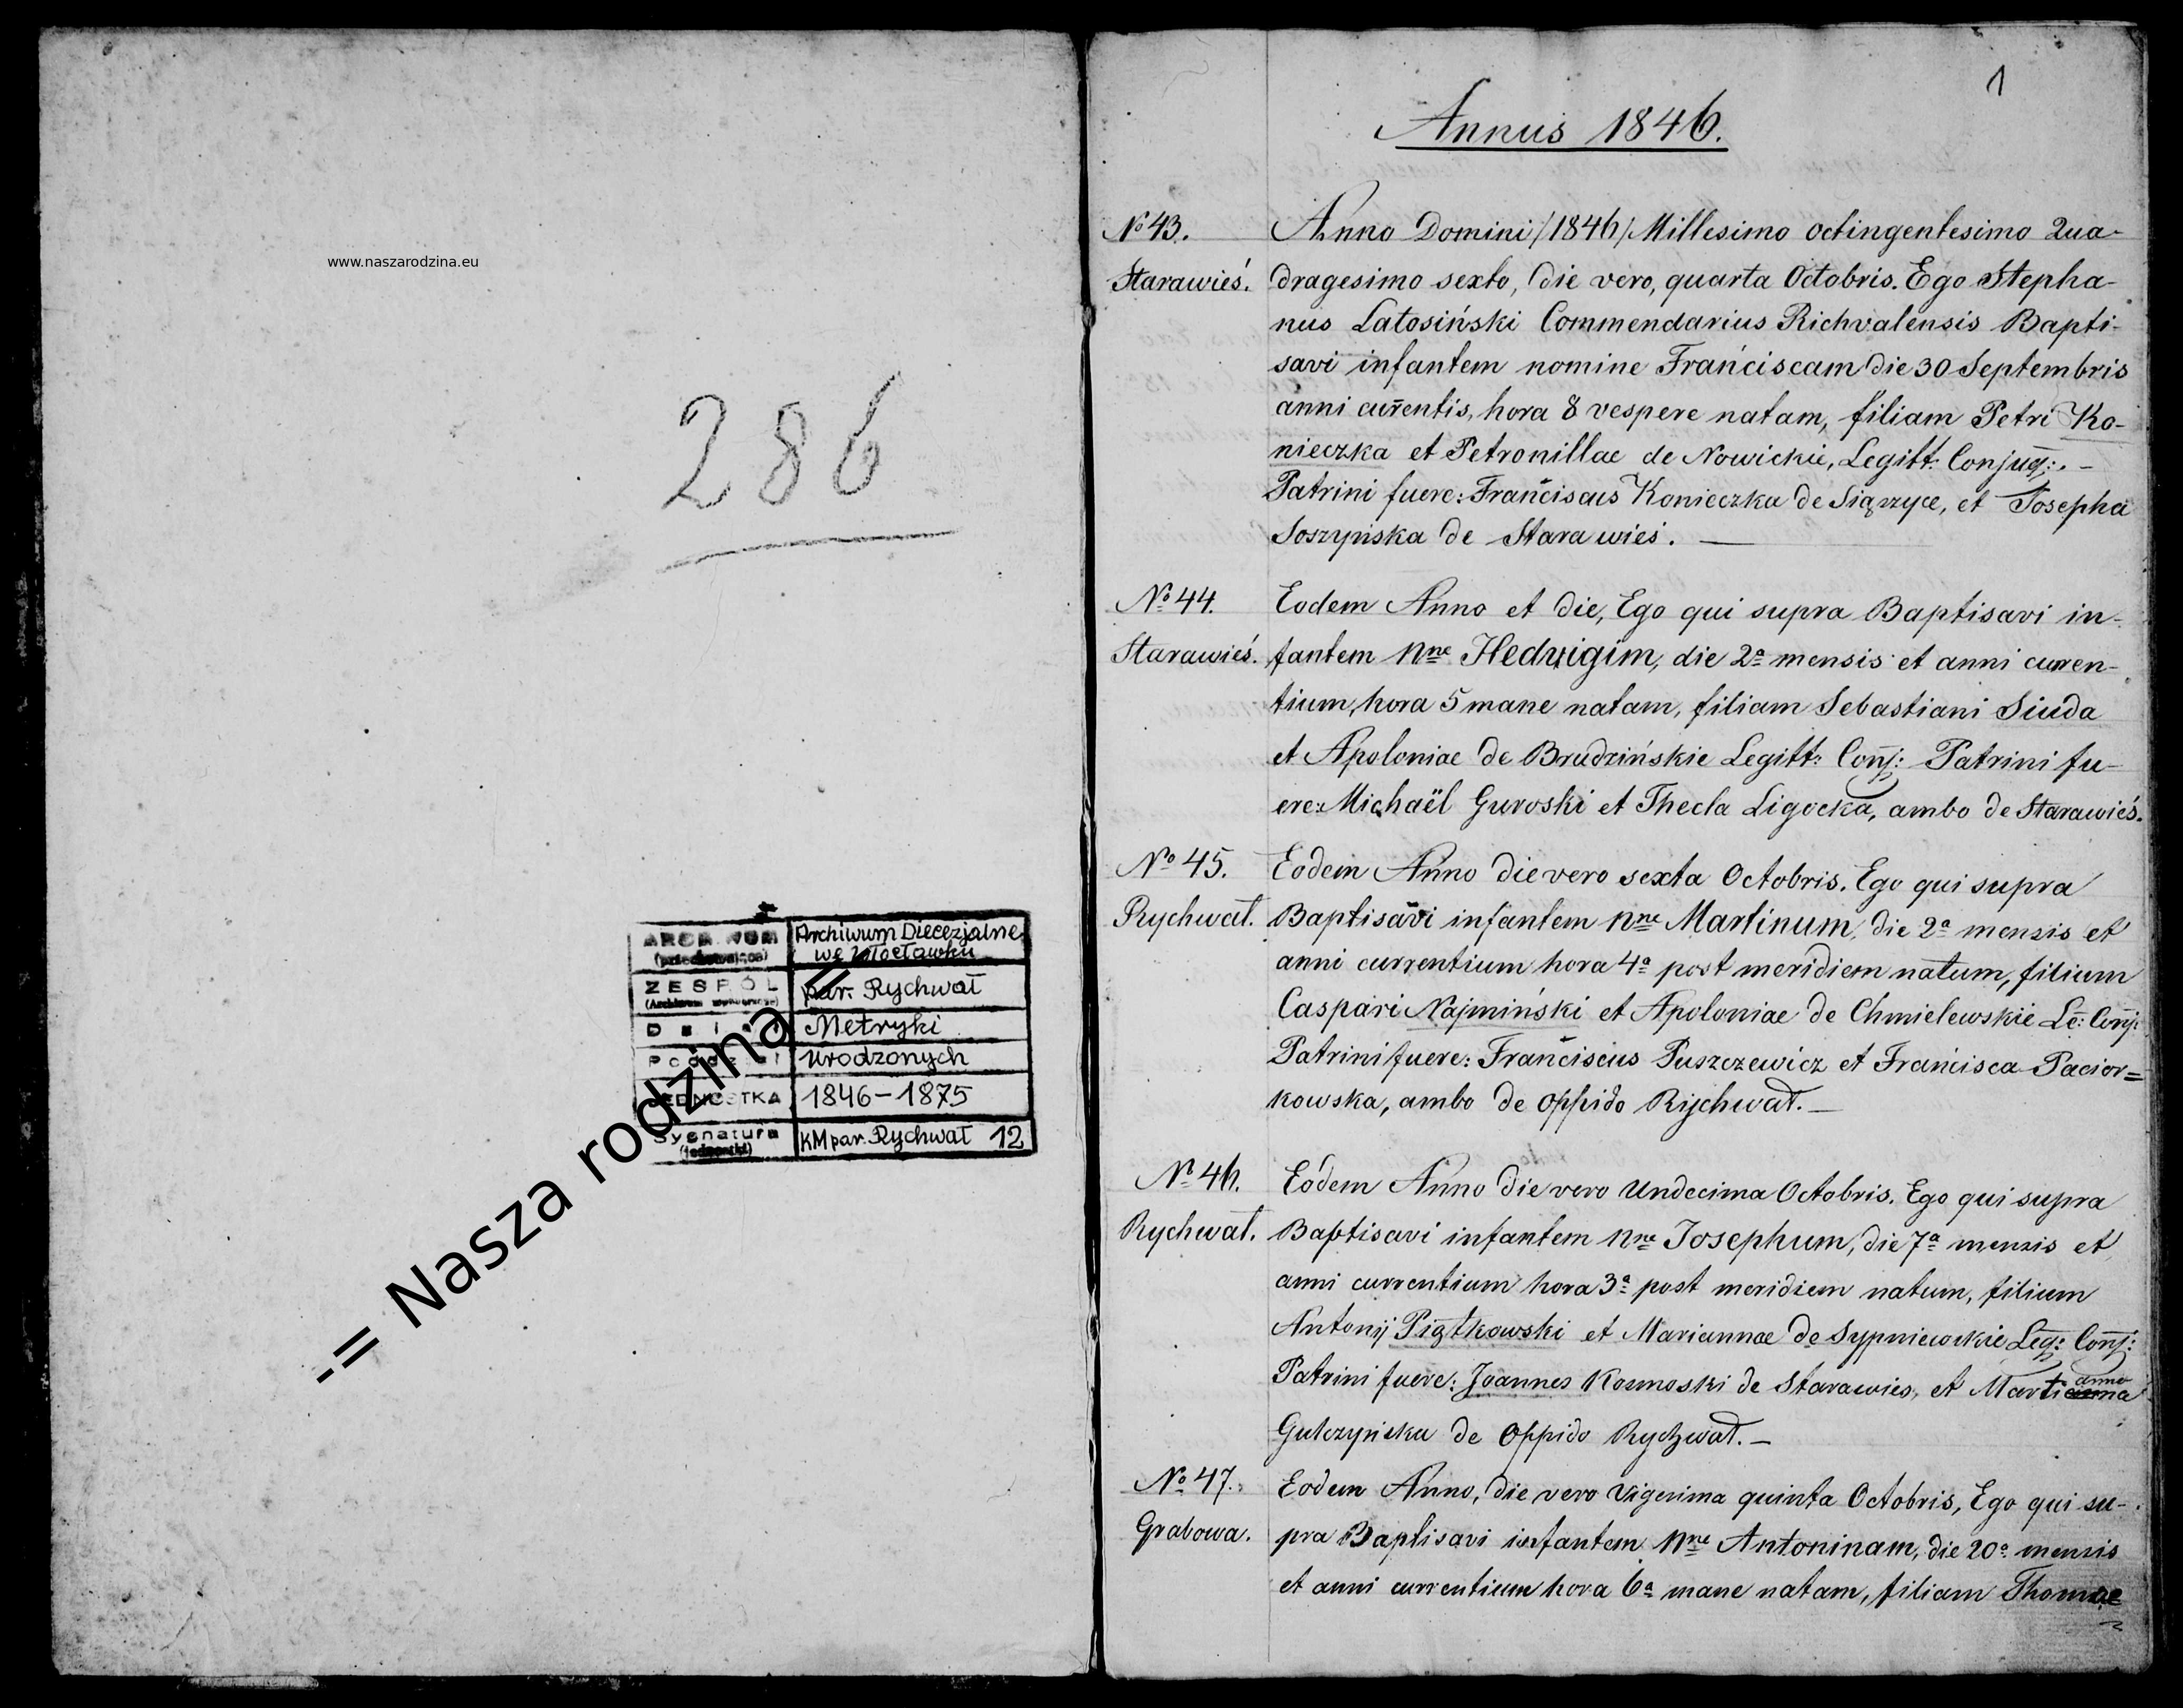 www.naszarodzina.eu
286
ARCHIWUM
(przechowujące)
Archiwum Diecezjalne
we Włocławku
ZESPÓŁ
par. Rychwał
Dział
Metryki
Urodzonych
JEDNOSTKA
1846-1875
Sygnatura
(jednostki)
KM par. Rychwał 12
-= Nasza rodzina =-
1
Annus 1846.
No 43.
Starawieś.
Anno Domini /1846/ Millesimo octingentesimo Qua-
dragesimo sexto, die vero, quarta Octobris. Ego Stepha-
nus Latosiński Commendarius Richvalensis Bapti-
savi infantem nomine Franciscam die 30 Septembris
anni curentis, hora 8 vespere natam, filiam Petri Ko-
nieczka et Petronillae de Nowickie, Legitt: Conjug: . -
Patrini fuere: Franciscus Konieczka de Siąszyce, et Josepha
Soszyńska de Starawieś. —
No 44.
Starawieś.
Eodem Anno et die, Ego qui supra Baptisavi in-
fantem nne Hedvigim, die 2a mensis et anni curren-
tium, hora 5 mane natam, filiam Sebastiani Siuda
et Apoloniae de Brudzińskie Legitt: Conj: Patrini fu-
ere: Michaël Guroski et Thecla Ligocka, ambo de Starawieś.
No 45.
Rychwał.
Eodem Anno die vero sexta Octobris. Ego qui supra
Baptisavi infantem nne Martinum, die 2a mensis et
anni currentium hora 4a post meridiem natum, filium
Caspari Najmiński et Apoloniae de Chmielewskie Le: Conj:
Patrini fuere: Franciscus Puszczewicz et Francisca Pacior=
kowska, ambo de oppido Rychwał. —
No 46.
Rychwał.
Eodem Anno die vero Undecima Octobris. Ego qui supra
Baptisavi infantem nne Josephum, die 7a mensis et
anni currentium hora 3a post meridiem natum, filium
Antonij Piątkowski et Mariannae de Sypniewskie Leg: Conj:
Patrini fuere: Joannes Kosmoski de Starawies, et
Gulczyńska de Oppido Rychwał. —
No 47.
Grabowa.
Eodem Anno, die vero Vigesima quinta Octobris, Ego qui su-
pra Baptisavi infantem nne Antoninam, die 20a mensis
et anni currentium hora 6a mane natam, filiam Thomae